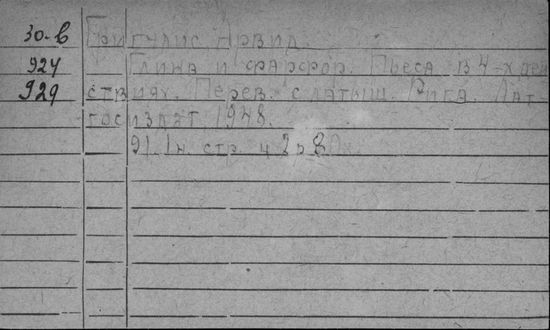 30-в Григулис Арвид.
924 Глина и фарфор. Пьеса в 4-х дей
929 ствиях. Перев. с латыш. Рига. Лат-
госиздат 1948.
91. 1 н. стр. ц. 2 р